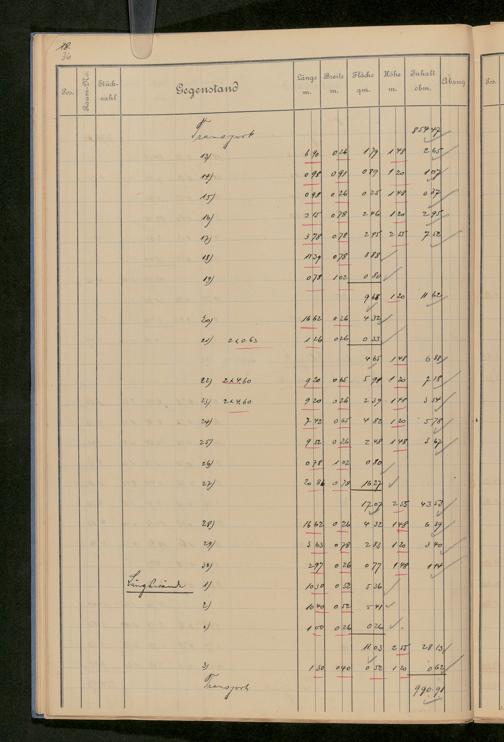 18.
36
Pos. Raum-No. Stückzahl Gegenstand Länge m. Breite m. Fläche qm. Höhe m. Inhalt cbm. Abzug Pos.
Transport 859 47
13) 6 90 0 26 1 79 1 48 2 65
14) 0 98 0 91 0 89 1 20 1 07
15) 0 98 0 26 0 25 1 48 0 37
16) 3 15 0 78 2 46 1 20 2 95
17) 3 78 0 78 2 95 2 55 7 52
18) 11 39 0 78 8 88
19) 0 78 1 02 0 80
9 68 1 20 11 62
20) 16 62 0 26 4 32
21) 2 x 0.63 1 26 0 26 0 33
4 65 1 48 6 88
22) 2 x 4.60 9 20 0 65 5 98 1 20 7 18
23) 2 x 4.60 9 20 0 26 2 39 1 48 3 54
24) 7 42 0 65 4 82 1 20 5 78
25) 9 52 0 26 2 48 1 48 3 67
26) 0 78 1 02 0 80
27) 20 86 0 78 16 27
17 07 2 55 43 53
28) 16 62 0 26 4 32 1 48 6 39
29) 3 63 0 78 2 83 1 20 3 40
30) 2 97 0 26 0 77 1 48 1 14
1) 10 30 0 52 5 36
2) 10 40 0 52 5 41
1 00 0 26 0 26
11 03 2 55 28 13
3) 1 30 0 40 0 52 1 20 0 62
Transport 990 91